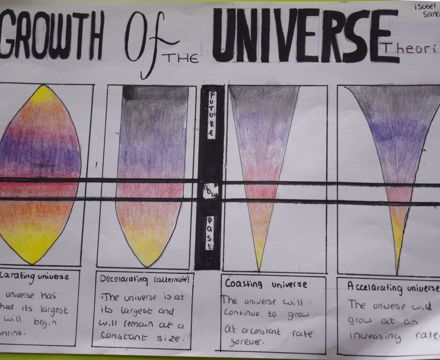 GROWTH Of THE UNIVERSE Theori
FUTURE
NOW
PAST
larating universe
universe has
its largest
will begin
Decelarating (alternate)
The universe is at
its largest and
will remain at a
constant size.
Coasting universe
The universe will
continue to grow
at a constant rate
forever.
Accelarating universe
The universe will
grow at an
increasing rate